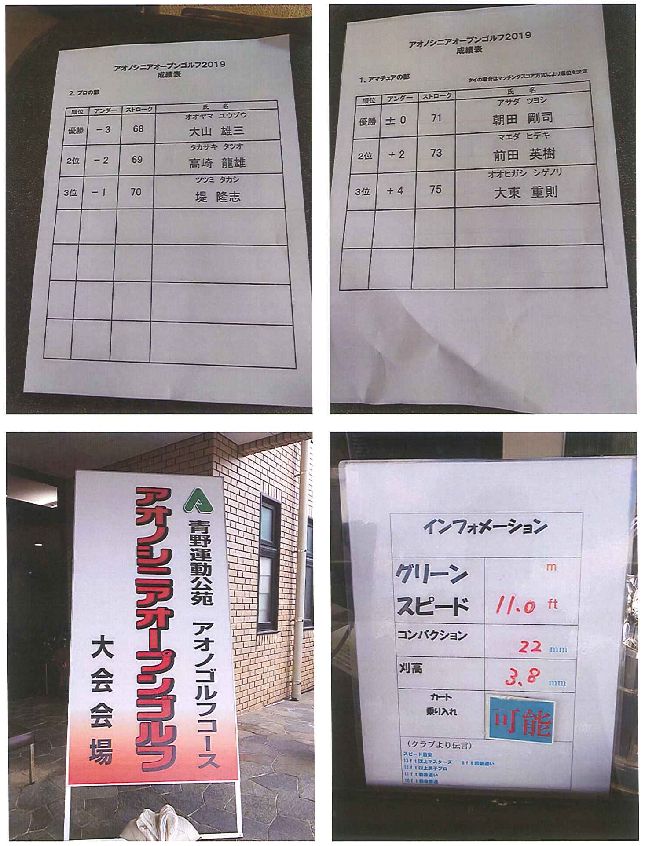 アオノシニアオープンゴルフ2019
成績表
2. プロの部
順位 アンダー ストローク 氏 名
オオヤマ ユウゾウ
優勝 －3 68 大山 雄三
タカサキ タツオ
2位 －2 69 高崎 龍雄
ツツミ タカシ
3位 －1 70 堤 隆志
アオノシニアオープンゴルフ2019
成績表
1. アマチュアの部
タイの場合はマッチングスコア方式により順位を決定
順位 アンダー ストローク 氏 名
アサダ ツヨシ
優勝 ±0 71 朝田 剛司
マエダ ヒデキ
2位 +2 73 前田 英樹
オオヒガシ シゲノリ
3位 +4 75 大東 重則
青野運動公苑 アオノゴルフコース
アオノシニアオープンゴルフ
大会会場
インフォメーション
グリーン m
スピード 11.0 ft
コンパクション 22 mm
刈高 3.8 mm
カート
乗り入れ 可能
（クラブより伝言）